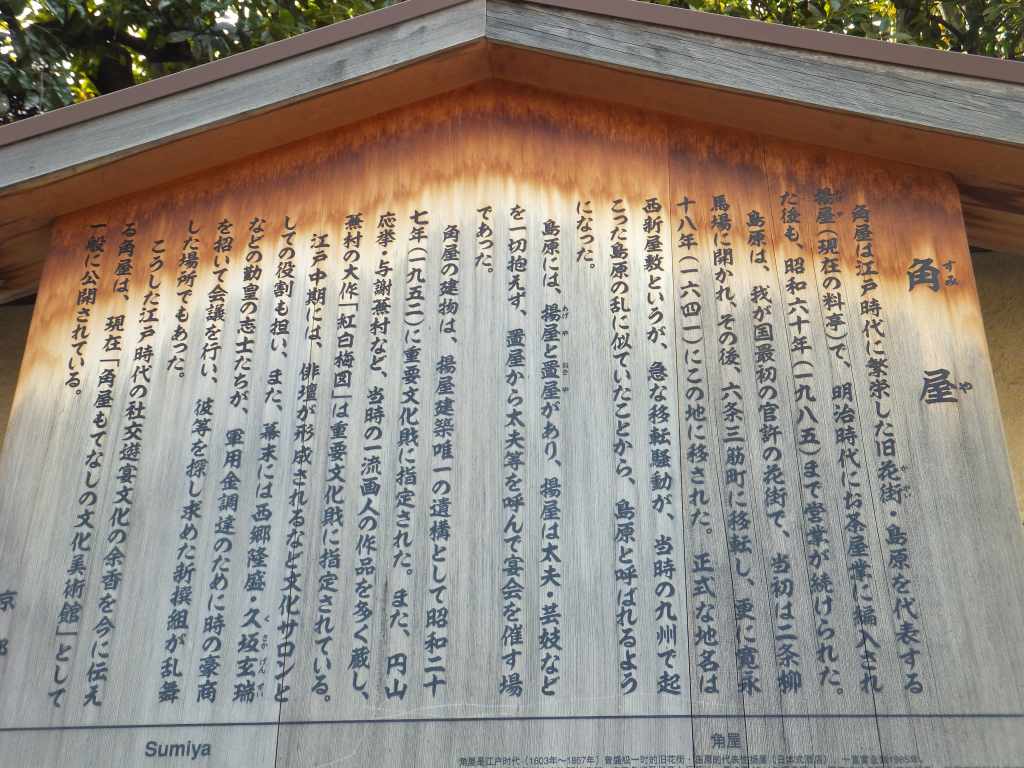 角屋
すみや
角屋は江戸時代に繁栄した旧花街・島原を代表する
揚屋(現在の料亭)で、明治時代にお茶屋業に編入され
た後も、昭和六十年(一九八五)まで営業が続けられた。
島原は、我が国最初の官許の花街で、当初は二条柳
馬場に開かれ、その後、六条三筋町に移転し、更に寛永
十八年(一六四一)にこの地に移された。正式な地名は
西新屋敷というが、急な移転騒動が、当時の九州で起
こった島原の乱に似ていたことから、島原と呼ばれるよう
になった。
島原には、揚屋と置屋があり、揚屋は太夫・芸妓など
あげや おきや
を一切抱えず、置屋から太夫等を呼んで宴会を催す場
であった。
角屋の建物は、揚屋建築唯一の遺構として昭和二十
七年(一九五二)に重要文化財に指定された。また、円山
応挙・与謝蕪村など、当時の一流画人の作品を多く蔵し、
蕪村の大作「紅白梅図」は重要文化財に指定されている。
江戸中期には、俳壇が形成されるなど文化サロンと
しての役割も担い、また、幕末には西郷隆盛・久坂玄瑞
くさかげんずい
などの勤皇の志士たちが、軍用金調達のために時の豪商
を招いて会議を行い、彼等を探し求めた新撰組が乱舞
した場所でもあった。
こうした江戸時代の社交遊宴文化の余香を今に伝え
る角屋は、現在「角屋もてなしの文化美術館」として
一般に公開されている。
京都
Sumiya
角屋
角屋是江户时代(1603年～1867年)曾盛极一时的旧花街・岛原的代表性扬屋(日本式酒店),一直营业到1985年。